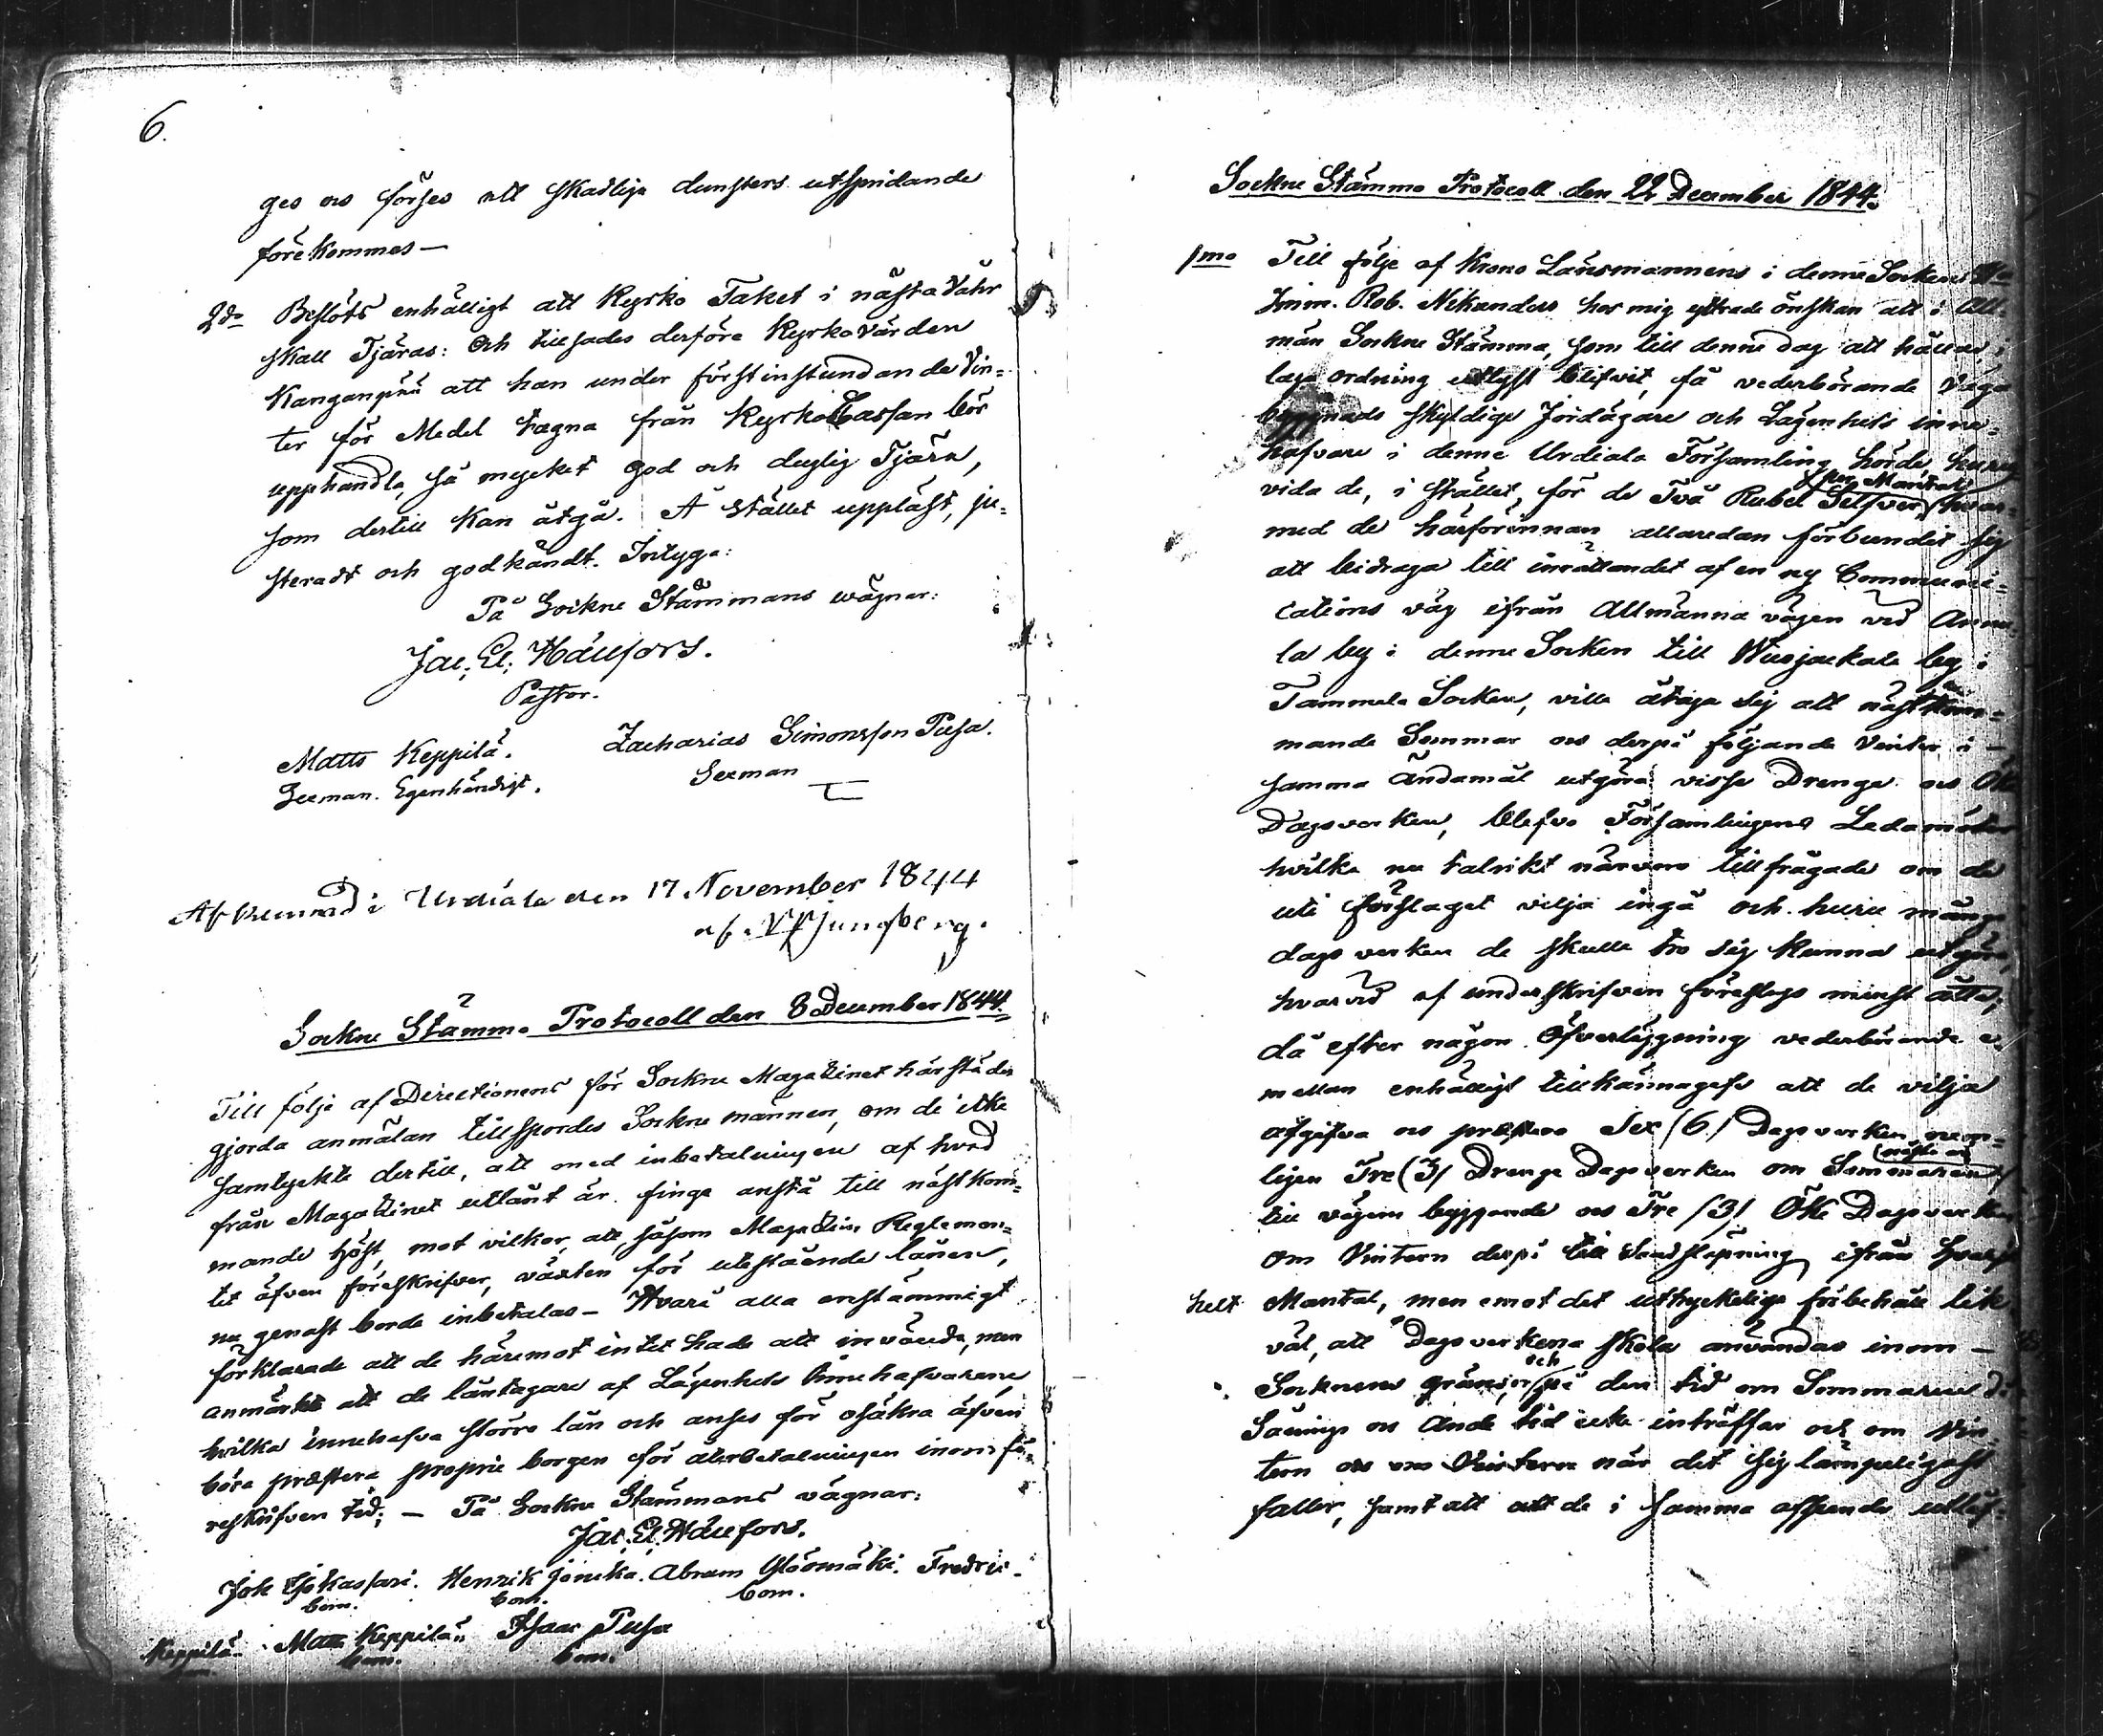 6.
ges os förses att skadliga dunsters utspridande
förekommes—
2do Beslöts enhälligt att Kyrko Taket i nästa Vahr
skall Tjäras: Och tillsades derföre Kyrkovärden
Kanganpää att han under förstinstundande Vin=
ter för Medel tagna från Kyrko Cassan bör
upphandla, så mycket god och duglig Tjära,
som dertill kan åtgå. Å Stället uppläst, ju=
steradt och godkändt. Intyga:
På Sockne Stämmans wägnar:
Jac. El. Wäufors.
Pastor.
Matts Keppilä. Zacharias Simonsson Pusa.
Sexman. Egenhändigt. Sexman
Afkunnad i Urdiala den 17 November 1844
af. Ljungberg.
Sockne Stämmo Protocoll den 8 December 1844.
Till följe af Directionens för Sockne Magazinet härstädes
gjorda anmälan tillspordes Sockne männen, om de icke
samtyckte dertill, att med inbetalningen af hvad
från Magazinet utlånt är finge anstå till nästkom=
mande höst, mot vilkor, att, såsom Magazins Reglemen=
tet äfven föreskrifver, växten för utestående lånen,
nu genast borde inbetalas— Hvarå alla enstämmigt
förklarade att de häremot intet hade att invända, men
anmärkte att de låntagare af Lägenhets Innehafvarene
hvilka innehafva större lån och anses för osäkra äfven
böra præstera proprie borgen för återbetalningen inom fö=
reskrifven tid;— På Sockne Stämmans vägnar:
Jac. El. Wäufors.
Joh. Henrik Jonika. Abram Fredric
bom. bom. bom.
Keppilä Matts Keppilä Isaac Pusa
bom. bom.
Sockne Stämmo Protocoll den 22 December 1844.
1mo Till följe af Krono Länsmannens i denne Socken
Imm. Rob. Nikanders hos mig yttrade önskan att i All=
män Sockne Stämma, som till denne dag att hållas i
laga ordning utlyst blifvit, få vederbörande Väga
byggnads skyldige Jordägare och Lägenhets inne=
hafvare i denne Urdiala Församling hörde, huru
vida de, i stället, för de Två Rubel Silfver per Mantal hvar=
med de härförinnan allaredan förbundit sig
att bidraga till inrättandet af en ny Communi=
cations väg ifrån Allmänna vägen vid Annu=
la by i denne Socken till Wusjackala by i
Tammela Socken, ville åtaga sig att nästkom=
mande Sommar os derpå följande Vinter i—
samma ändamål utgöra visse Drenge os Öke
Dagsverken, blefvo Församlingens Ledamöter
hvilka nu talrikt närvoro tillfrågade om de
uti förslaget vilja ingå och huru många
dagsverken de skulle tro sig kunna utgöra,
hvarvid af underskrifven föreslogs minst åtta,
då efter någon öfverläggning vederbörande e=
mellan enhälligt tillkännagafs att de vilja
afgifva os præstera Sex (6) Dagsverken nem=
ligen Tre (3) Drenge Dagsverken om Sommaren
till vägens byggande os Tre (3) Öke Dagsverken
om Vintern derpå till Sandsläpning ifrån hvarje
helt Mantal, men emot det uttryckeliga förbehåll lik
väl, att Dagsverkena skola användas inom—
Socknens gränser, och på den tid om Sommaren då
Sånings os Ande tid icke inträffar och om Vin
tern os om Vintern när det sig lämpeligast
faller, samt att att de i samma afseende utlof=